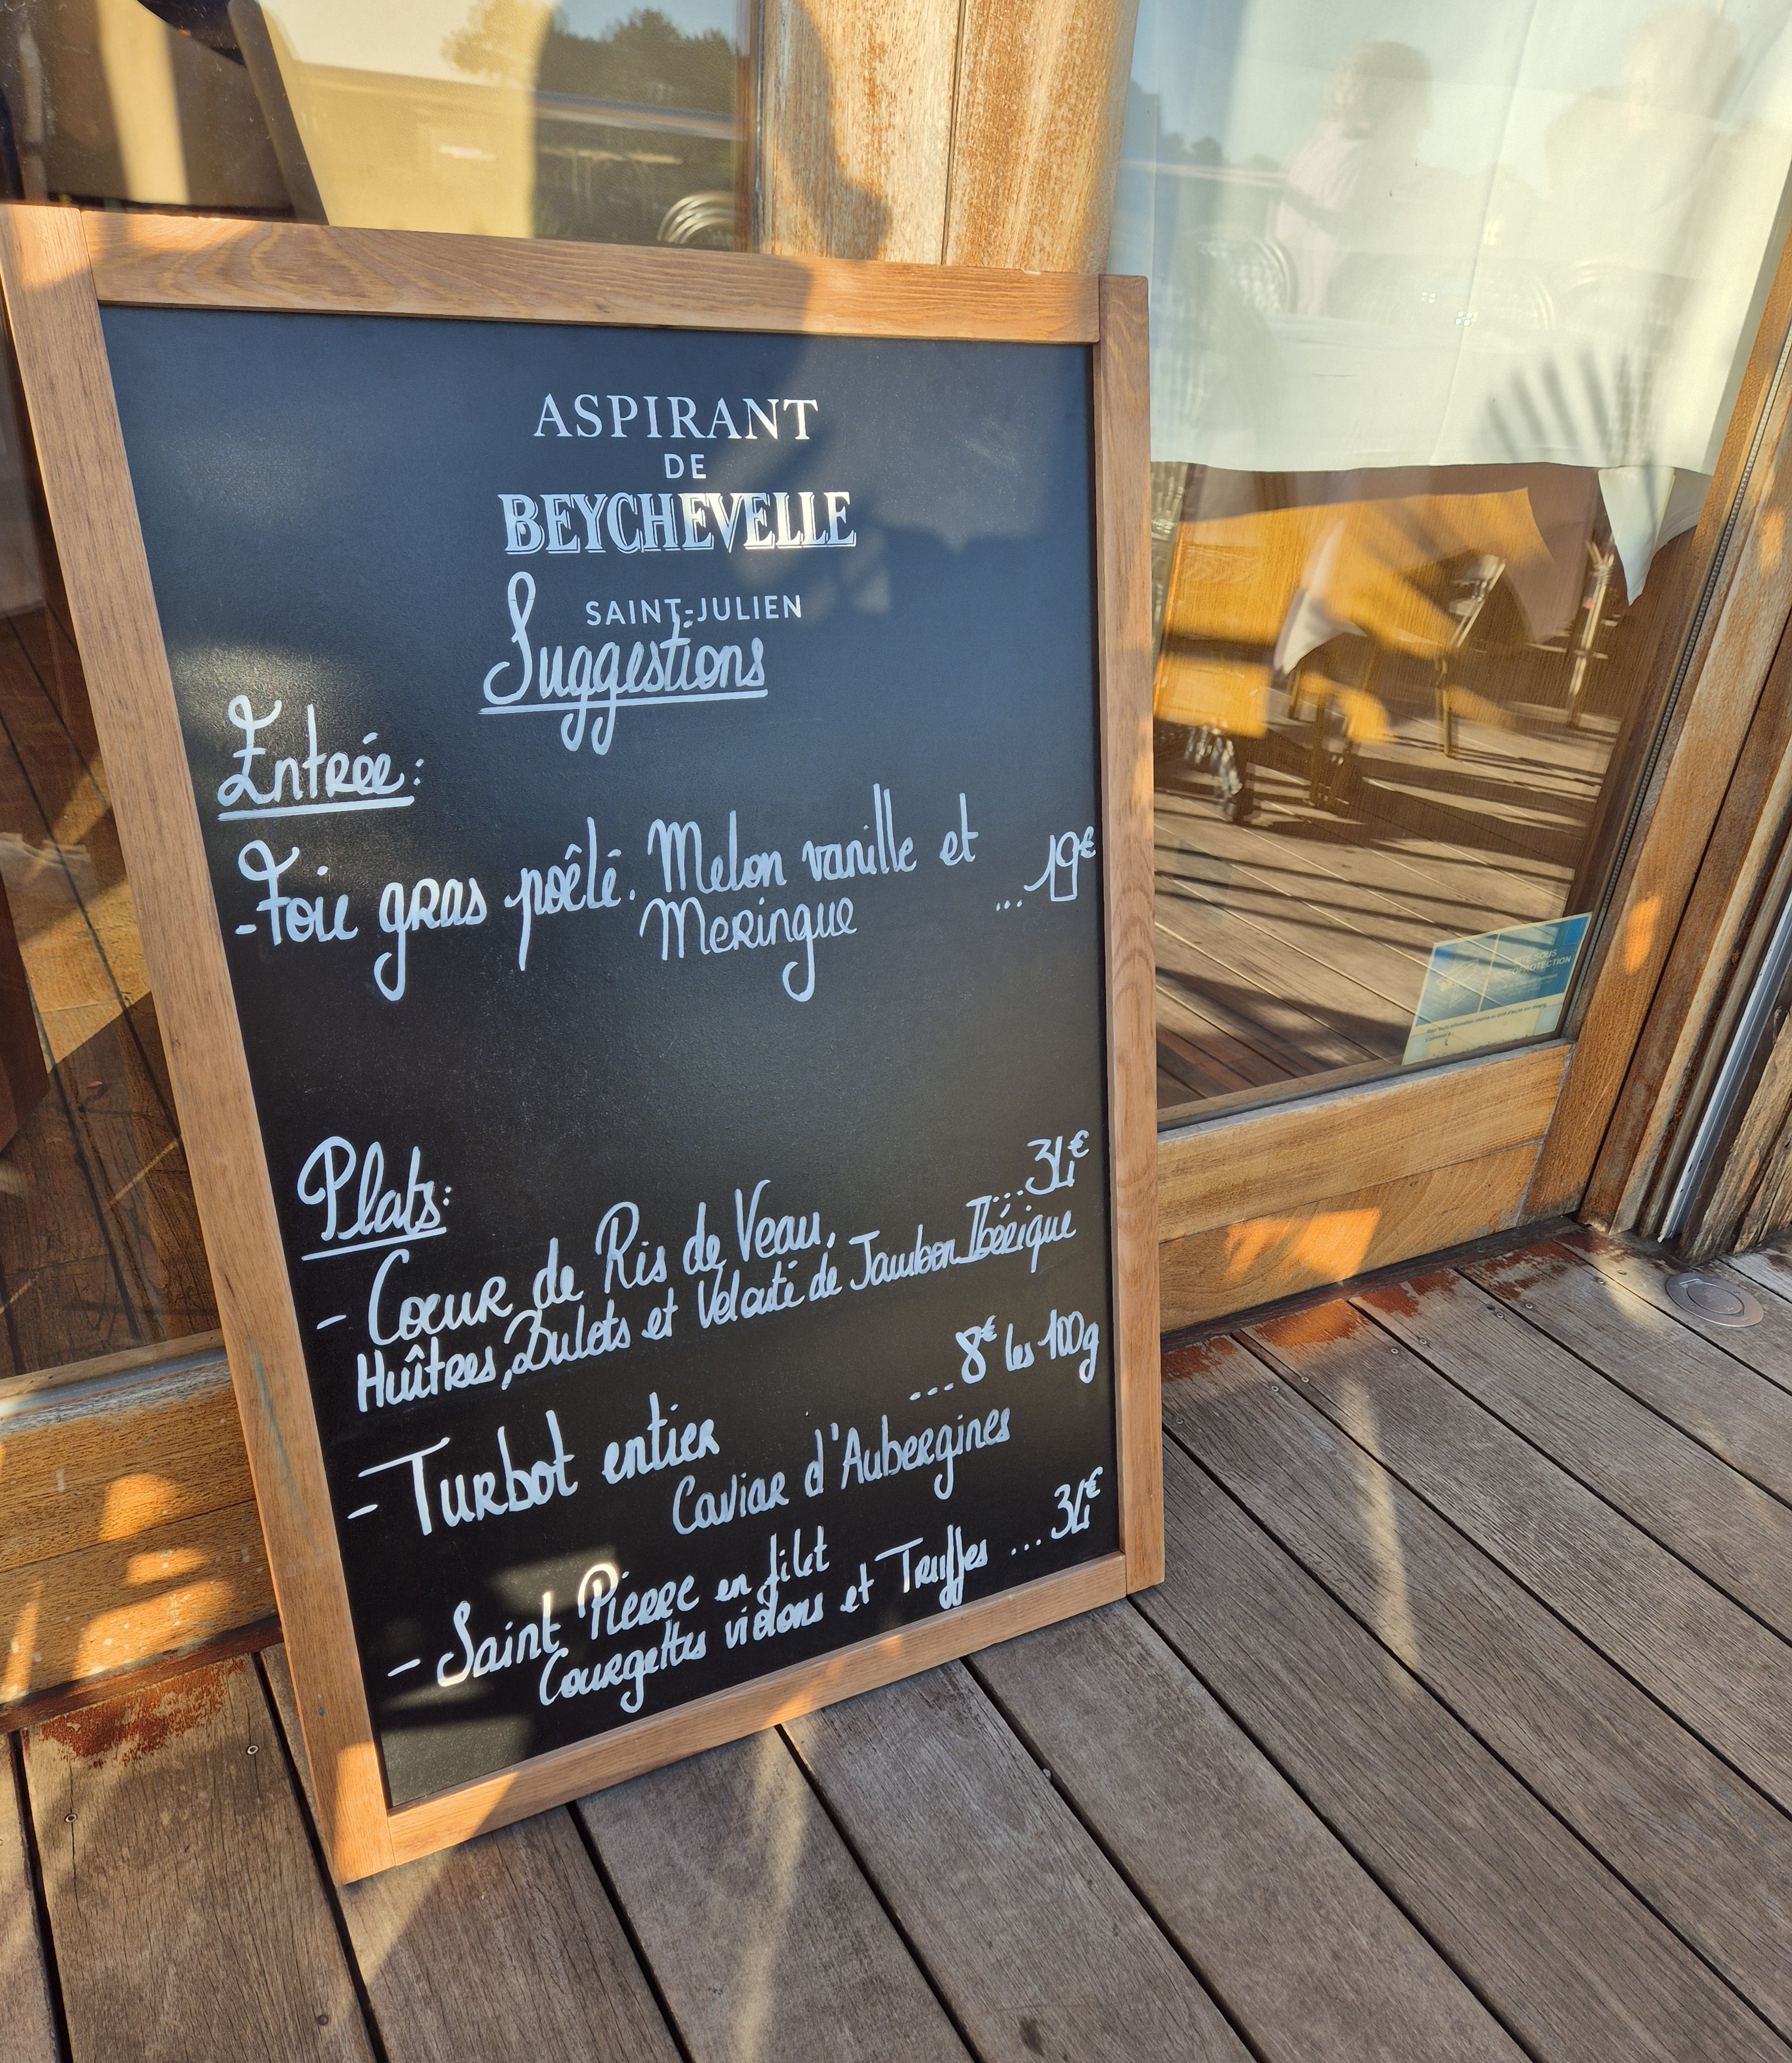 ASPIRANT
DE
BEYCHEVELLE
SAINT-JULIEN
Suggestions
Entrée:
- Foie gras poêlé. Melon vanille et
Meringue ... 19€
Plats:
- Coeur de Ris de Veau, ... 34€
Huîtres, Dulets et Velouté de Jambon Ibérique
- Turbot entier ... 8€ les 100g
Caviar d'Aubergines
- Saint Pierre en filet
Courgettes violons et Truffes ... 34€
SITE SOUS
PROTECTION